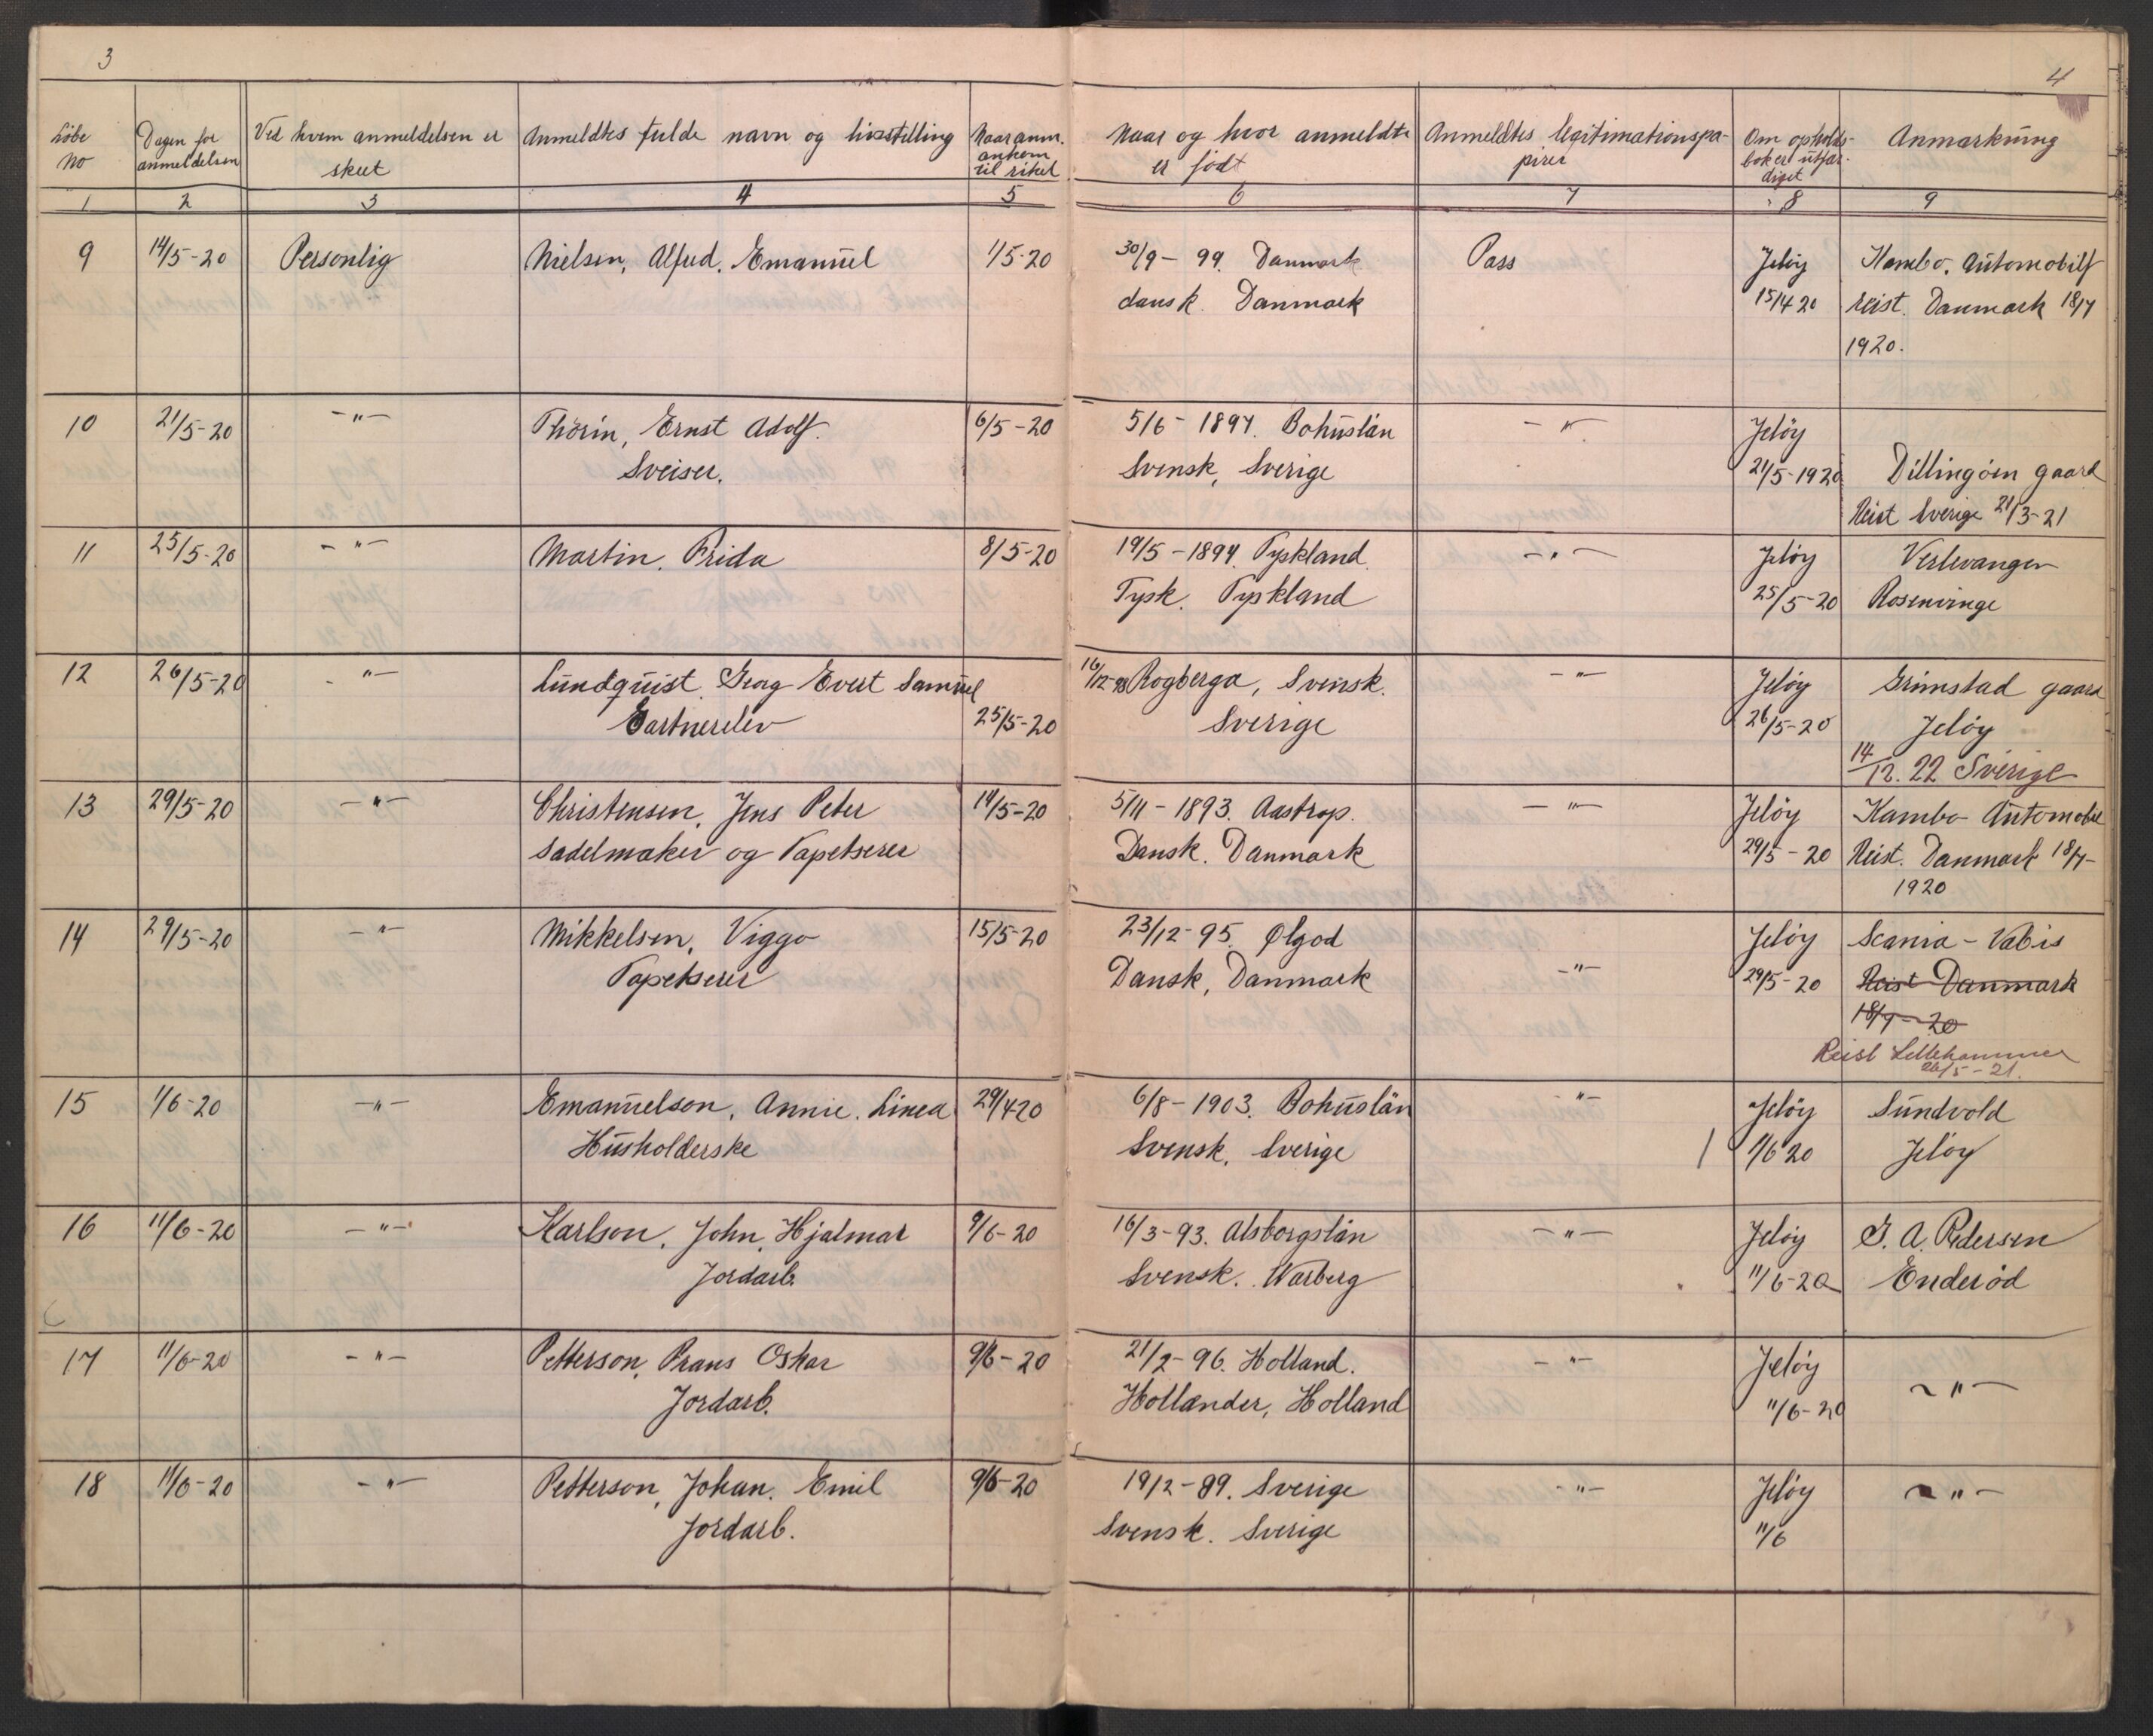 3
4
Løbe No | Dagen for anmeldelsen | Ved hvem anmeldelsen er skeet | Anmeldtes fulde navn og livsstilling | Naar anm. ankom til riket | Naar og hvor anmeldte er født | Anmeldtes legitimationspapirer | Om opholdsbok er utfærdiget | Anmærkning
1 | 2 | 3 | 4 | 5 | 6 | 7 | 8 | 9
9 | 14/5-20 | Personlig | Nielsen, Alfred. Emanuel | 1/5-20 | 30/9-99. Danmark | Pass | Jeløy | Kambo. Automobilf
dansk. Danmark | 15/4 20 | reist. Danmark 18/7
1920.
10 | 21/5-20 | -"- | Thörin, Ernst Adolf. | 6/5-20 | 5/6-1897. Bohuslän | -"- | Jeløy
Sveiser. | Svensk, Sverige | 21/5-1920 | Dillingøen gaard
Reist Sverige 21/3-21
11 | 25/5-20 | -"- | Martin. Frida | 8/5-20 | 19/5-1894. Tyskland. | -"- | Jeløy | Verlevangen
Tysk. Tyskland | 25/5-20 | Rosenvinge
12 | 26/5-20 | -"- | Lundquist. Georg Evert Samuel | 16/12-98 Rogberga, Svensk. | -"- | Jeløy | Grimstad gaard
Gartnerelev | 25/5-20 | Sverige | 26/5-20 | Jeløy
14/12. 22 Sverige
13 | 29/5-20 | -"- | Christensen, Jens Peter | 14/5-20 | 5/11-1893. Aastrup. | -"- | Jeløy | Kambo Automobil
Sadelmaker og Tapetserer | Dansk. Danmark | 29/5-20 | Reist. Danmark 18/7-
1920
14 | 29/5-20 | -"- | Mikkelsen, Viggo | 15/5-20 | 23/12-95. Ølgod | Jeløy | Scania-Vabis
Tapetserer | Dansk, Danmark | -"- | 29/5-20 | Reist Danmark
18/7-20
Reist Lillehammer
26/5-21.
15 | 1/6-20 | -"- | Emanuelson, Annie. Linea | 29/4 20 | 6/8-1903. Bohuslän | -"- | Jeløy | Sundvold
Husholderske | Svensk, Sverige | 1/6 20 | Jeløy
16 | 11/6-20 | -"- | Karlson, John. Hjalmar | 9/6-20 | 16/3-93. Alsborgslän | -"- | Jeløy | G. A. Pedersen
Jordarb. | Svensk. Warberg | 11/6-20 | Enderød
17 | 11/6-20 | -"- | Petterson, Frans Oskar | 9/6-20 | 21/2-96. Holland. | -"- | Jeløy | -"-
Jordarb. | Hollander, Holland | 11/6-20
18 | 11/6-20 | -"- | Petterson, Johan. Emil | 9/6-20 | 19/2-89. Sverige | -"- | Jeløy | -"-
Jordarb. | Svensk. Sverige | 11/6